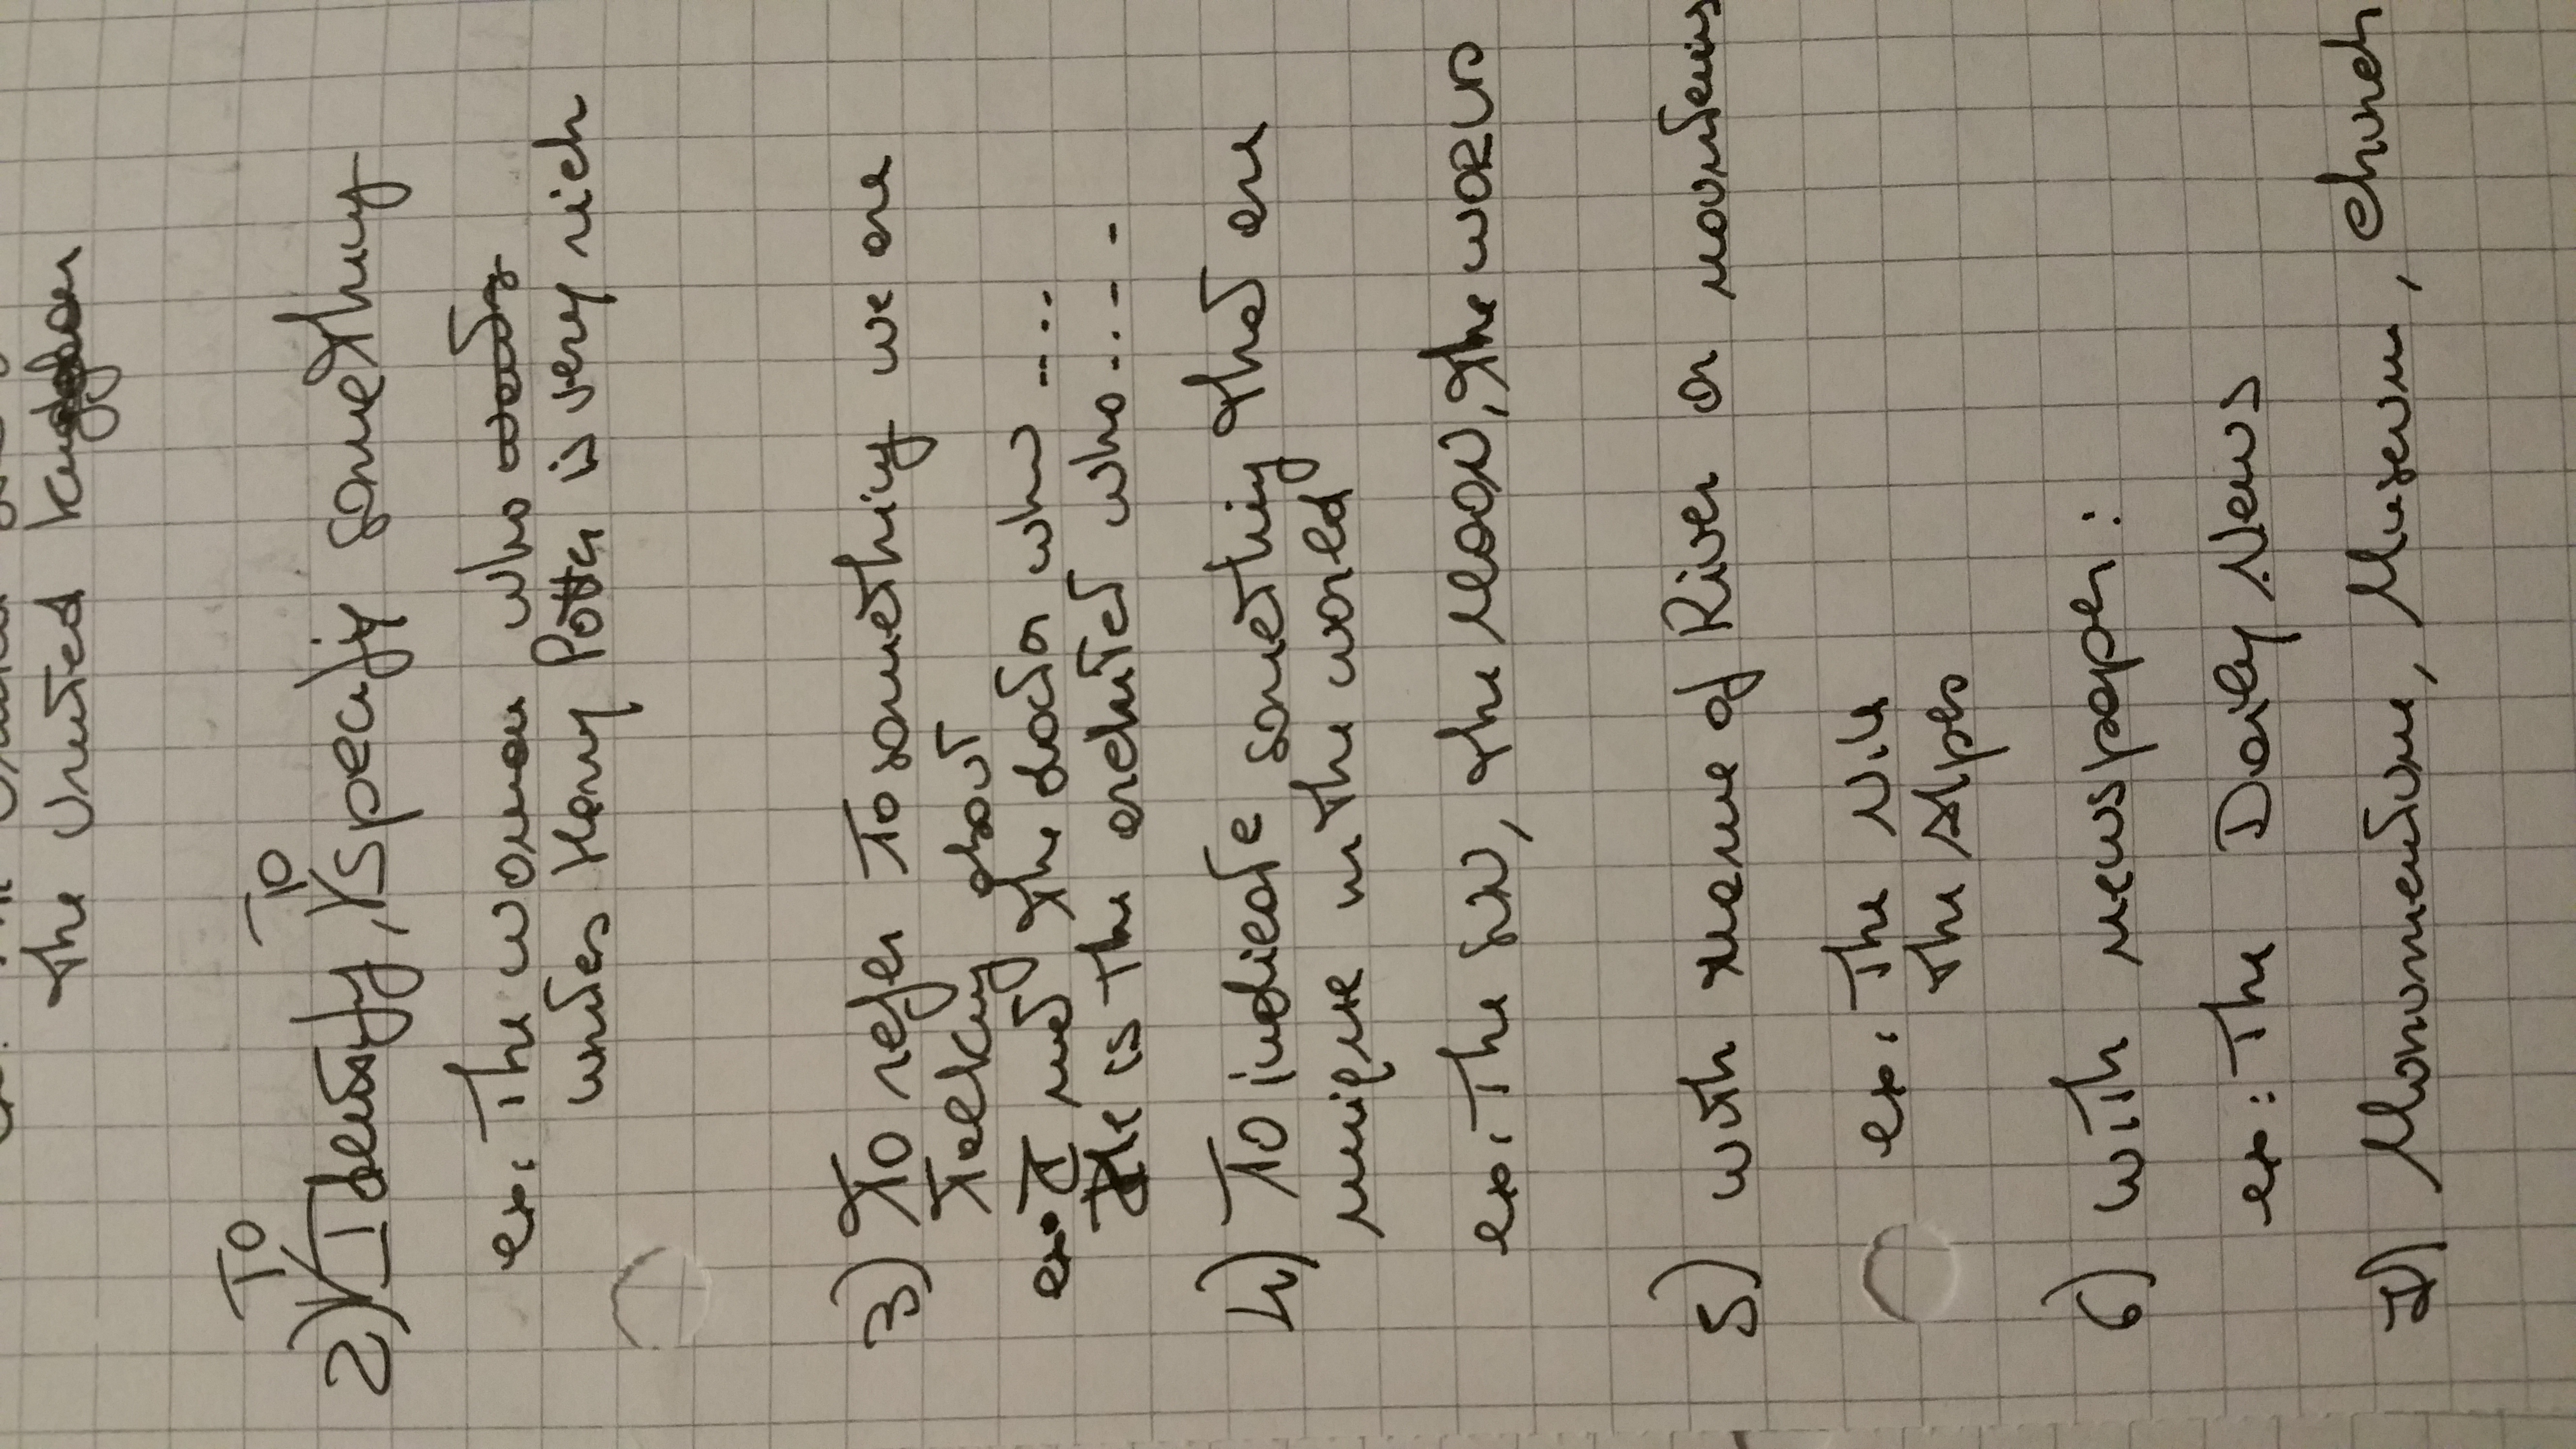 the United
To To
2) Identify, specify something
ex: The woman who
writes Harry Potter is very rich
3) To refer To something we are
talking about
ex: I met the doctor who ....
He is the architect who ....
4) To indicate something that are
unique in the world
ex: The sun, the moon, the WORLD
5) with name of River or mountains
ex: The Nile
The Alps
6) with newspaper:
ex: The Daily News
7) Monumentum, Museum, church